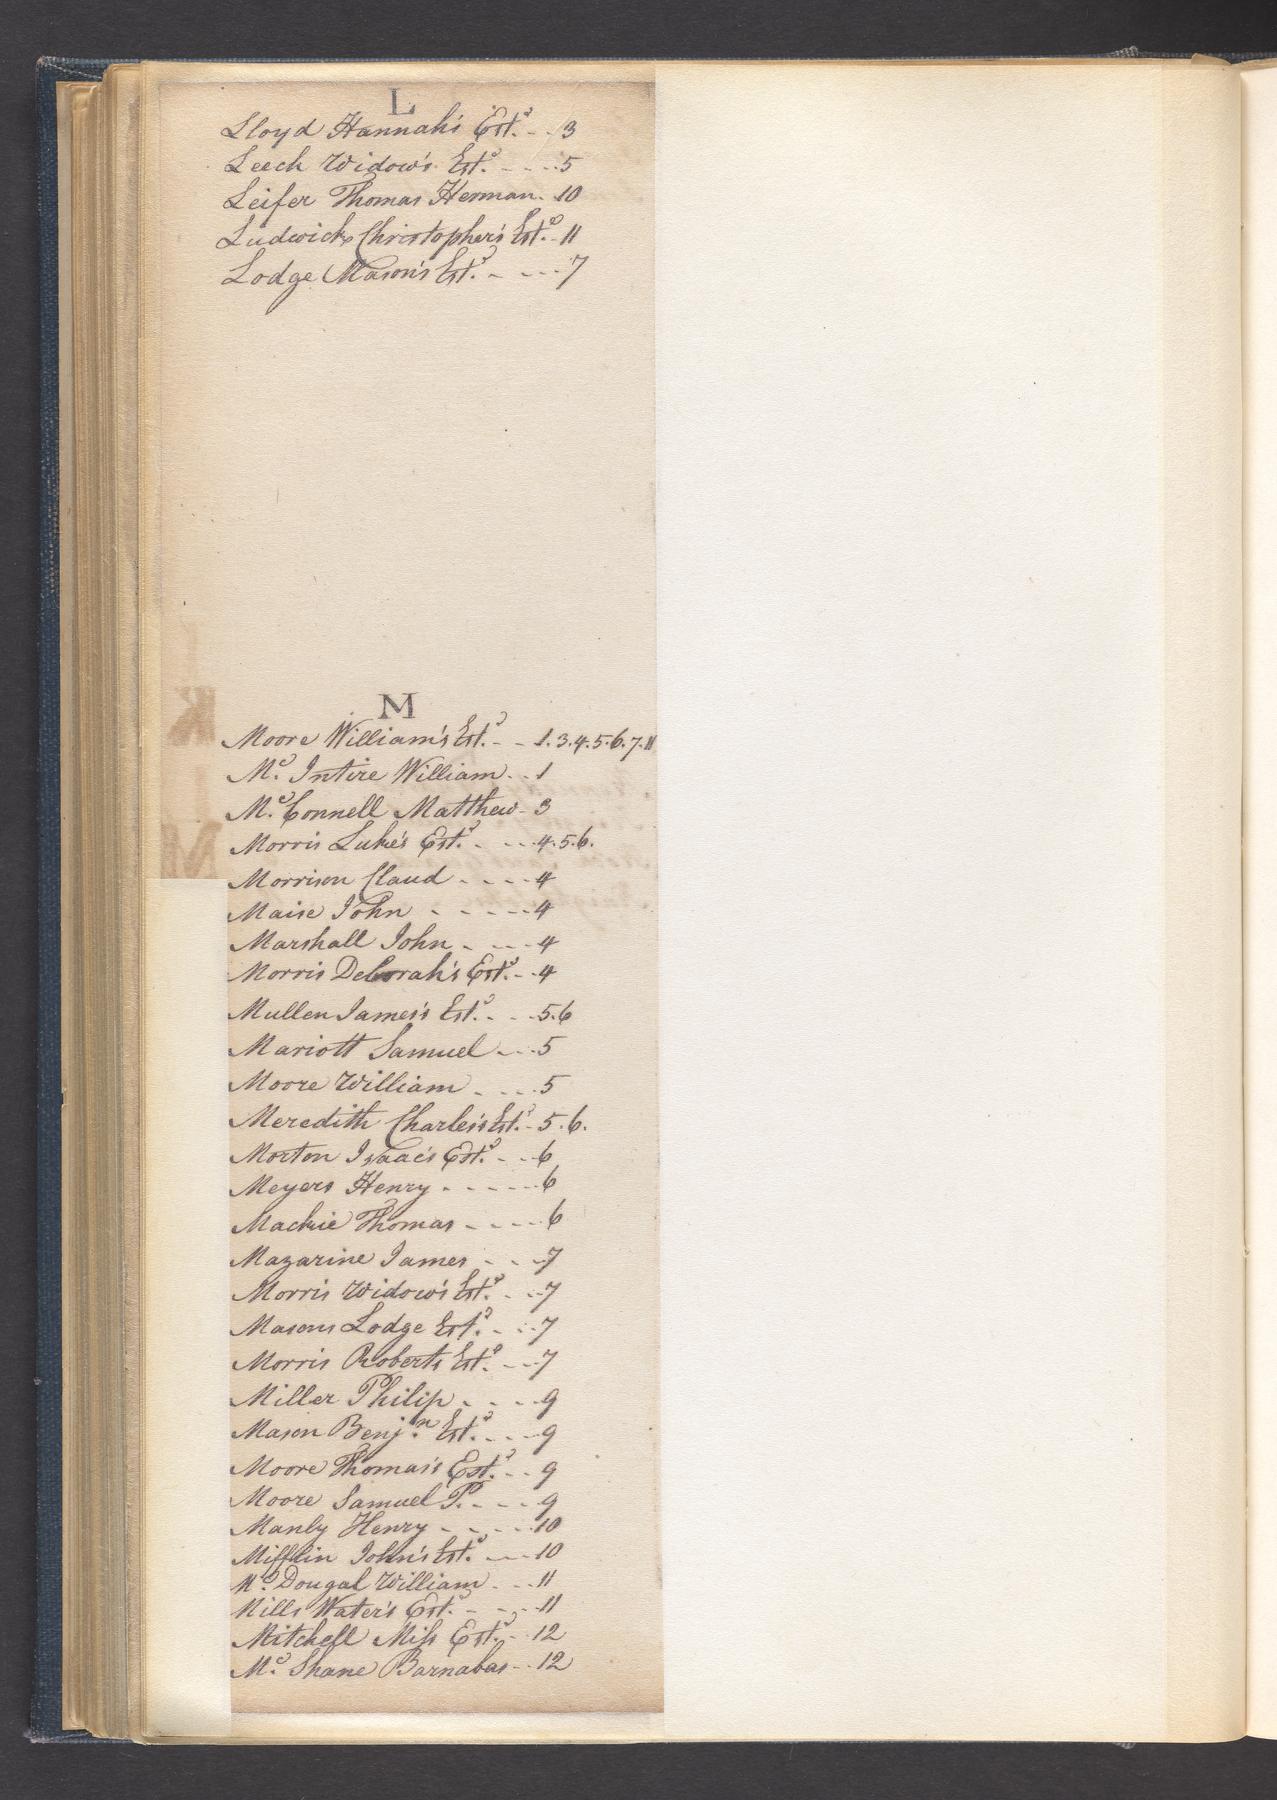 L
Lloyd Hannah's Est.e - - 3
Leech Widow's Est.e - - - - 5
Leifer Thomas Herman - 10
Ludwick Christopher's Est.e - 11
Lodge Mason's Est.e - - - - 7
M
Moore William's Est.e - - 1.3.4.5.6.7.11
Mc. Intire William - - 1
Mc. Connell Matthew - 3
Morris Luke's Est.e - - - 4.5.6.
Morrison Claud - - - - 4
Maise John - - - - - 4
Marshall John - - - - 4
Morris Deborah's Est.e - - 4
Mullen James's Est.e - - - 5.6
Mariott Samuel - - - 5
Moore William - - - - 5
Meredith Charles's Est.e - 5.6.
Morton Isaac's Est.e - - - 6
Meyers Henry - - - - - - 6
Mackie Thomas - - - - 6
Mazarine James - - - 7
Morris Widow's Est.e - - - 7
Masons Lodge Est.e - - - 7
Morris Roberts Est.e - - - 7
Miller Philip - - - - 9
Mason Benj.n Est.e - - - 9
Moore Thomas's Est.e - - 9
Moore Samuel P. - - - 9
Manly Henry - - - - - 10
Mifflin John's Est.e - - - 10
Mc. Dougal William - - - 11
Mills Water's Est.e - - - 11
Mitchell Miss Est.e - - 12
Mc. Shane Barnabas - - 12
K
M